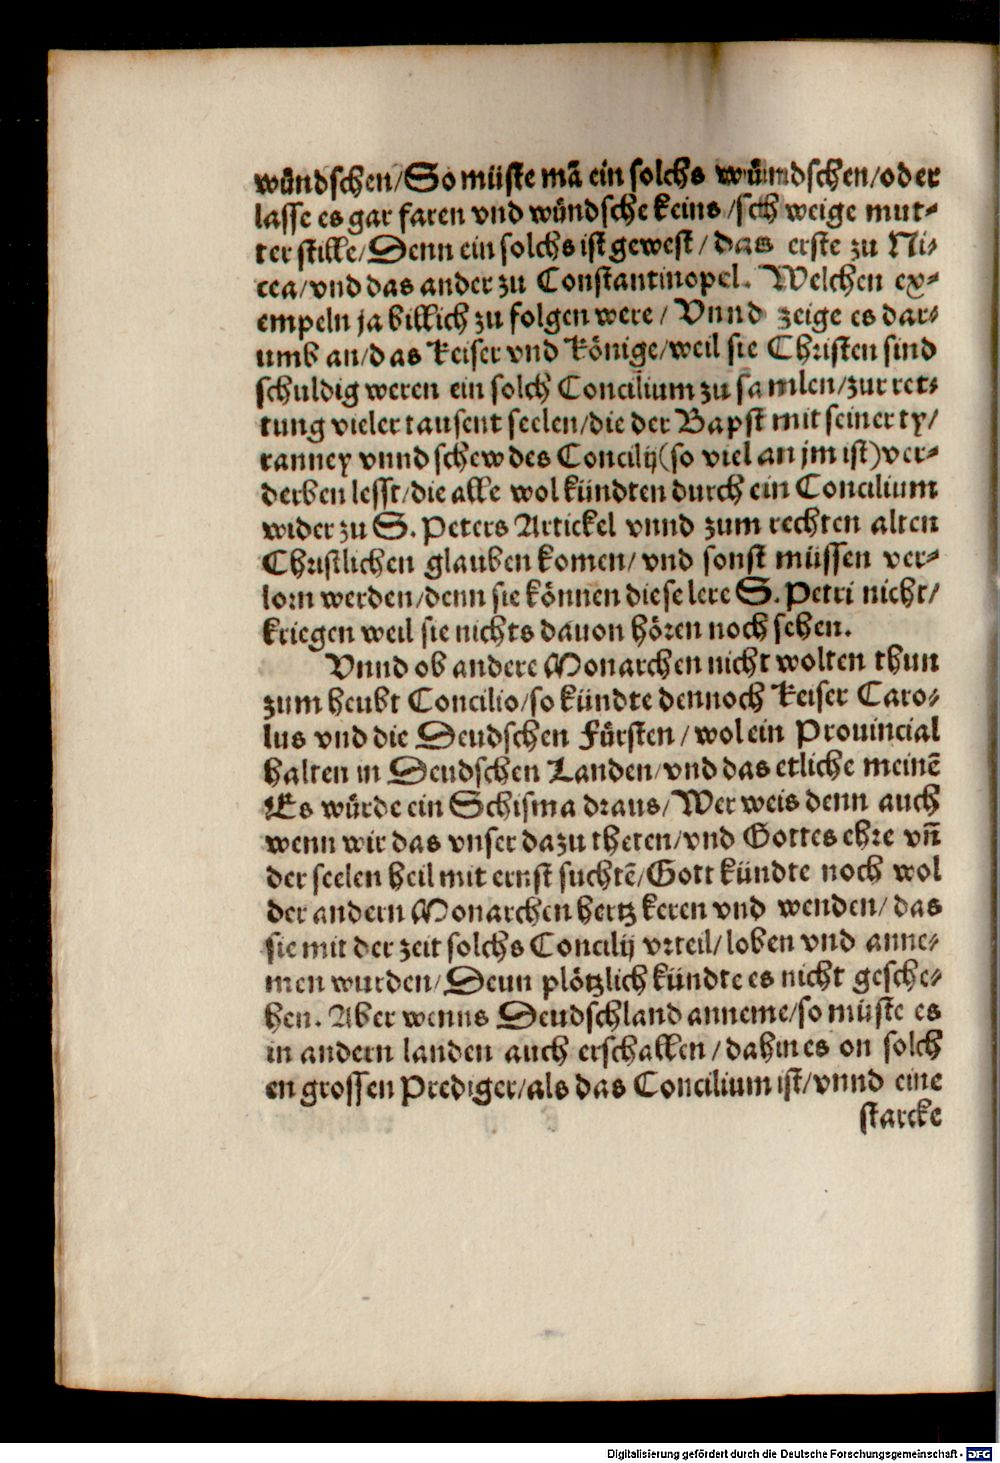 wündschen/So müste mã ein solchs wündschen/oder
lasse es gar faren vnd wündsche keins/schweige mut-
ter stille/Denn ein solchs ist gewest/das erste zu Ni-
cea/vnd das ander zu Constantinopel. Welchen ex-
empeln ja billich zu folgen were/Vnnd zeige es dar-
umb an/das Keiser vnd Könige/weil sie Christen sind
schuldig weren ein solch Concilium zu samlen/zur ret-
tung vieler tausent seelen/die der Bapst mit seiner ty/
ranney vnnd schew des Concilij(so viel an jm ist)ver-
derben lesst/die alle wol kündten durch ein Concilium
wider zu S. Peters Artickel vnnd zum rechten alten
Christlichen glauben komen/vnd sonst müssen ver-
lorn werden/denn sie können diese lere S. Petri nicht/
kriegen weil sie nichts dauon hören noch sehen.
Vnnd ob andere Monarchen nicht wolten thun
zum heubt Concilio/so kündte dennoch Keiser Caro-
lus vnd die Deudschen Fürsten/wol ein Prouincial
halten in Deudschen Landen/vnd das etliche meinẽ
Es würde ein Schisma draus/Wer weis denn auch
wenn wir das vnser dazu theten/vnd Gottes ehre vñ
der seelen heil mit ernst suchtẽ/Gott kündte noch wol
der andern Monarchen hertz keren vnd wenden/das
sie mit der zeit solchs Concilij vrteil/loben vnd anne-
men wurden/Denn plötzlich kündte es nicht gesche-
hen. Aber wenns Deudschland anneme/so müste es
in andern landen auch erschallen/dahin es on solch
en grossen Prediger/als das Concilium ist/vnnd eine
starcke
Digitalisierung gefördert durch die Deutsche Forschungsgemeinschaft - DFG